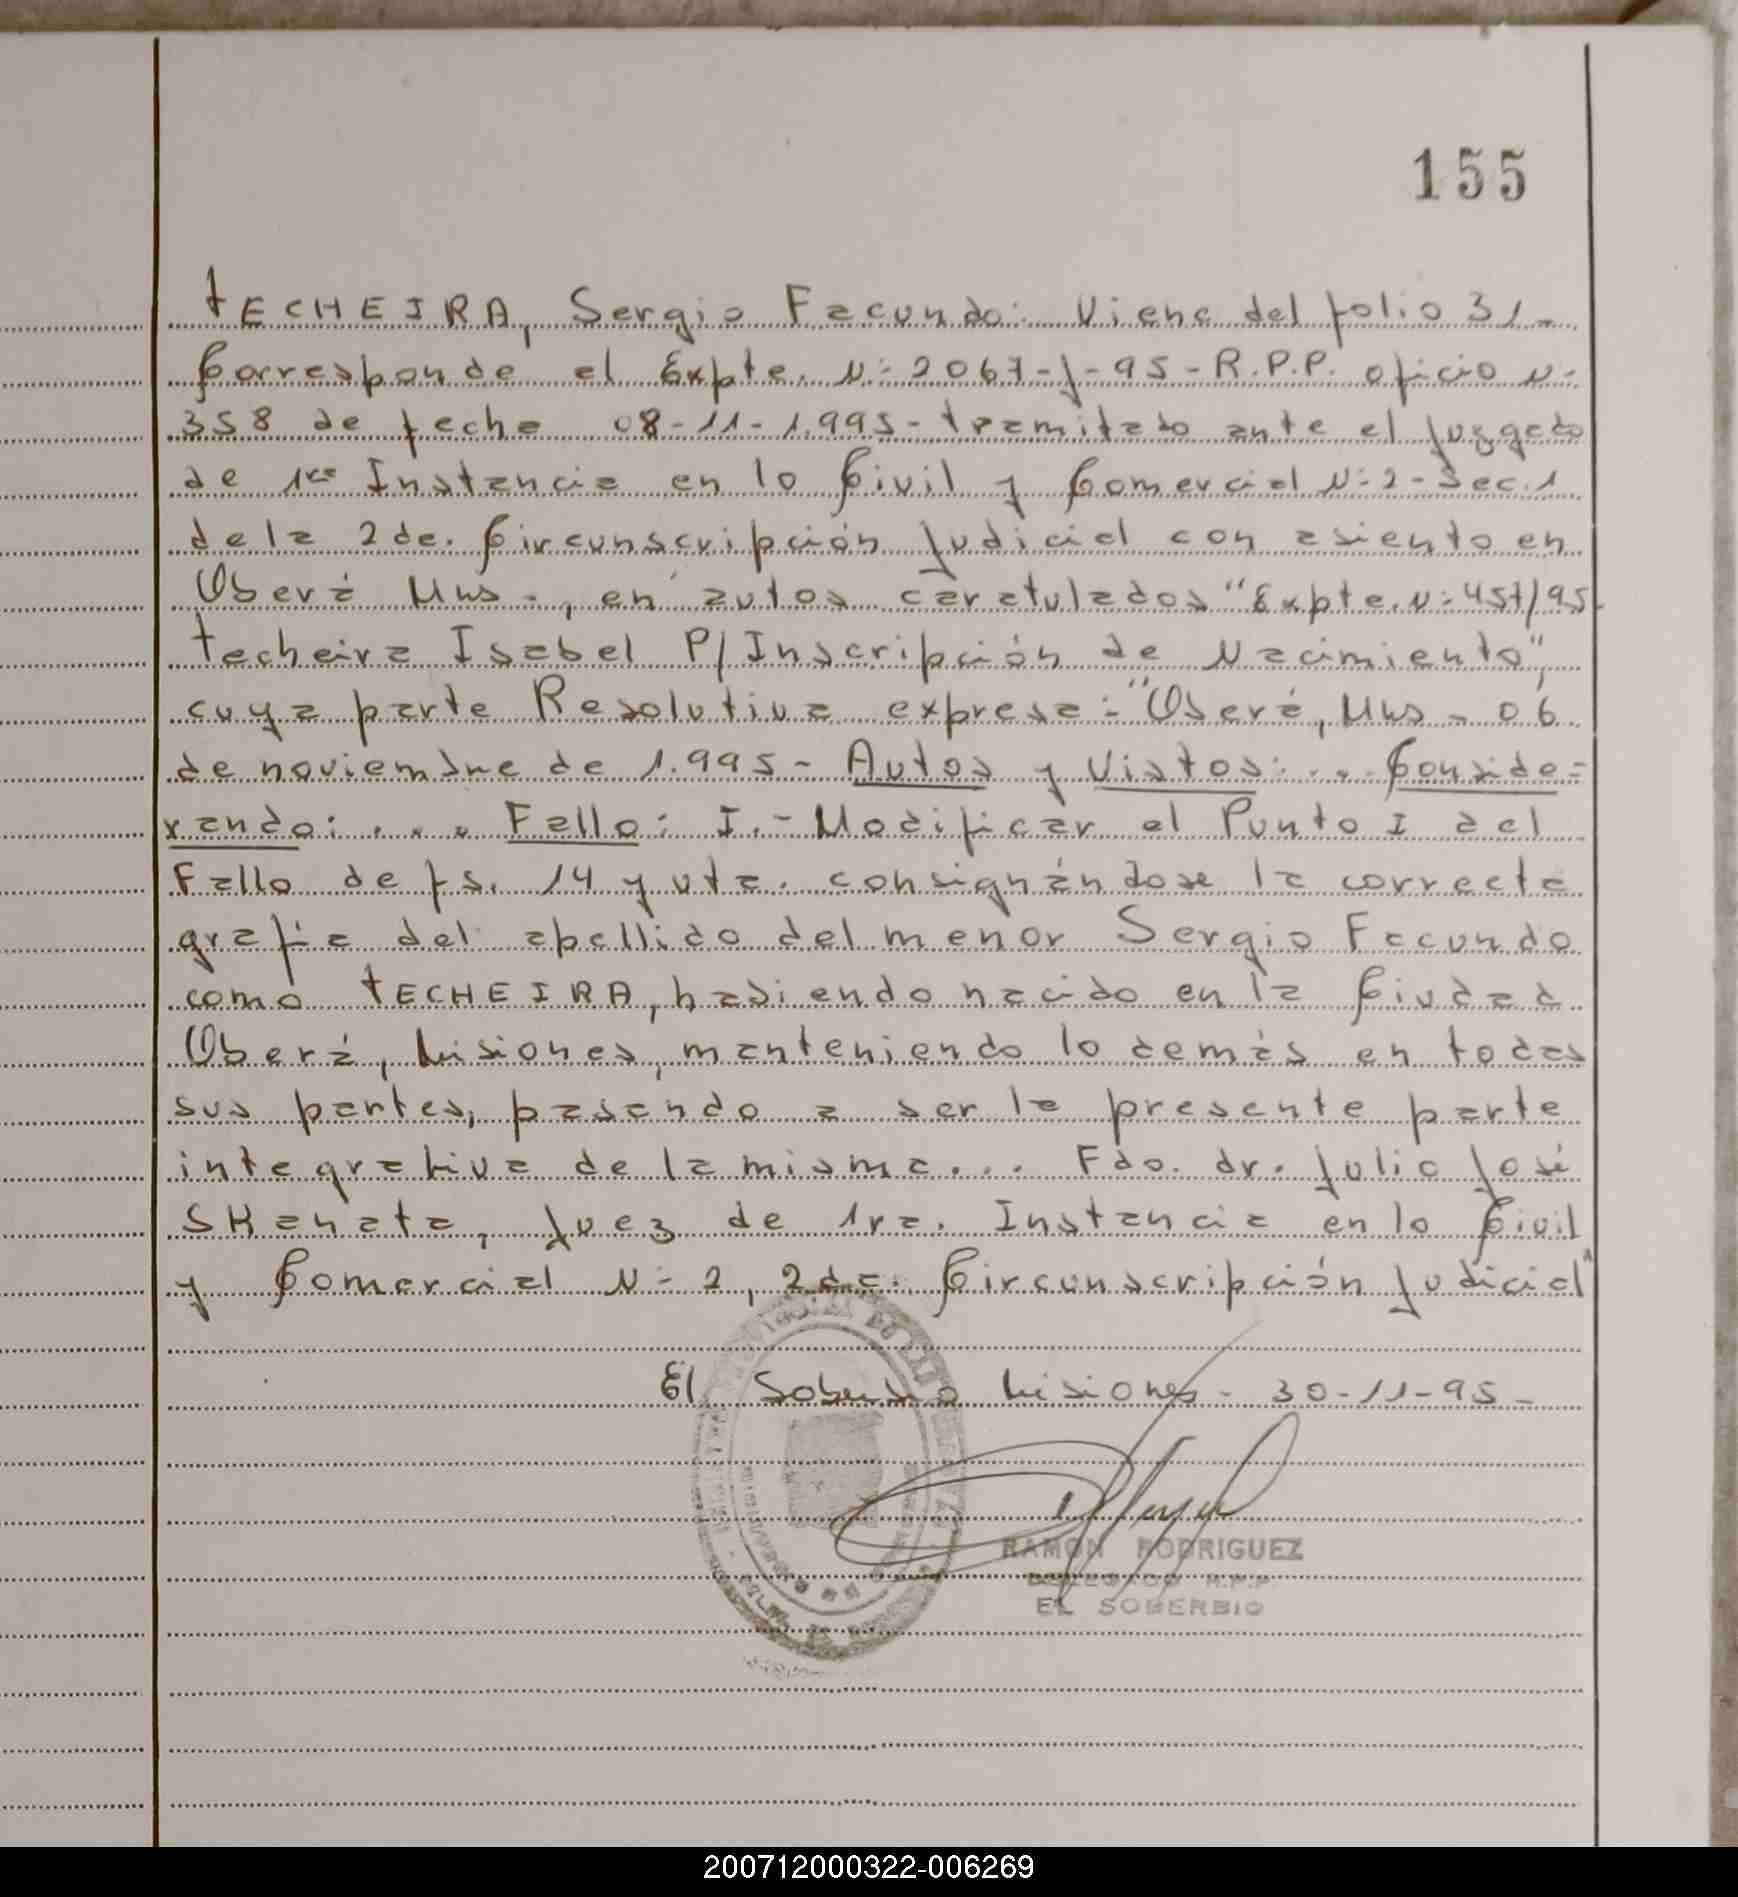 155
TECHEIRA, Sergio Facundo: Viene del folio 31-
Corresponde al Expte. N: 2067-J-95-R.P.P. oficio N-
358 de fecha 08-11-1.995- tramitado ante el Juzgado
de 1ra Instancia en lo Civil y Comercial N: 2- Sec. 1
de la 2da. Circunscripción Judicial con asiento en
Oberá Mns-, en autos caratulados "Expte. N: 457/95
Techeira Isabel P/ Inscripción de Nacimiento",
cuya parte Resolutiva expresa: "Oberá, Mns- 06
de noviembre de 1.995- Autos y Vistos: ... Conside=
rando: .... Fallo: I.- Modificar el Punto I del
Fallo de fs. 14 y vta. consignándose la correcta
grafía del apellido del menor Sergio Facundo
como TECHEIRA, habiendo nacido en la Ciudad
Oberá, Misiones, manteniendo lo demás en todas
sus partes, pasando a ser la presente parte
integrativa de la misma... Fdo. dr. Julio José
SKanata, Juez de 1ra. Instancia en lo Civil
y Comercial N: 2, 2da. Circunscripción Judicial"
El Soberbio Misiones- 30-11-95-
RAMON RODRIGUEZ
DELEGADO R.P.P.
EL SOBERBIO
200712000322-006269